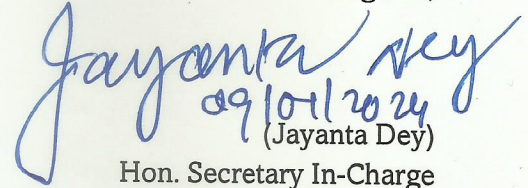 Jayanta Dey
09/01/2024
(Jayanta Dey)
Hon. Secretary In-Charge